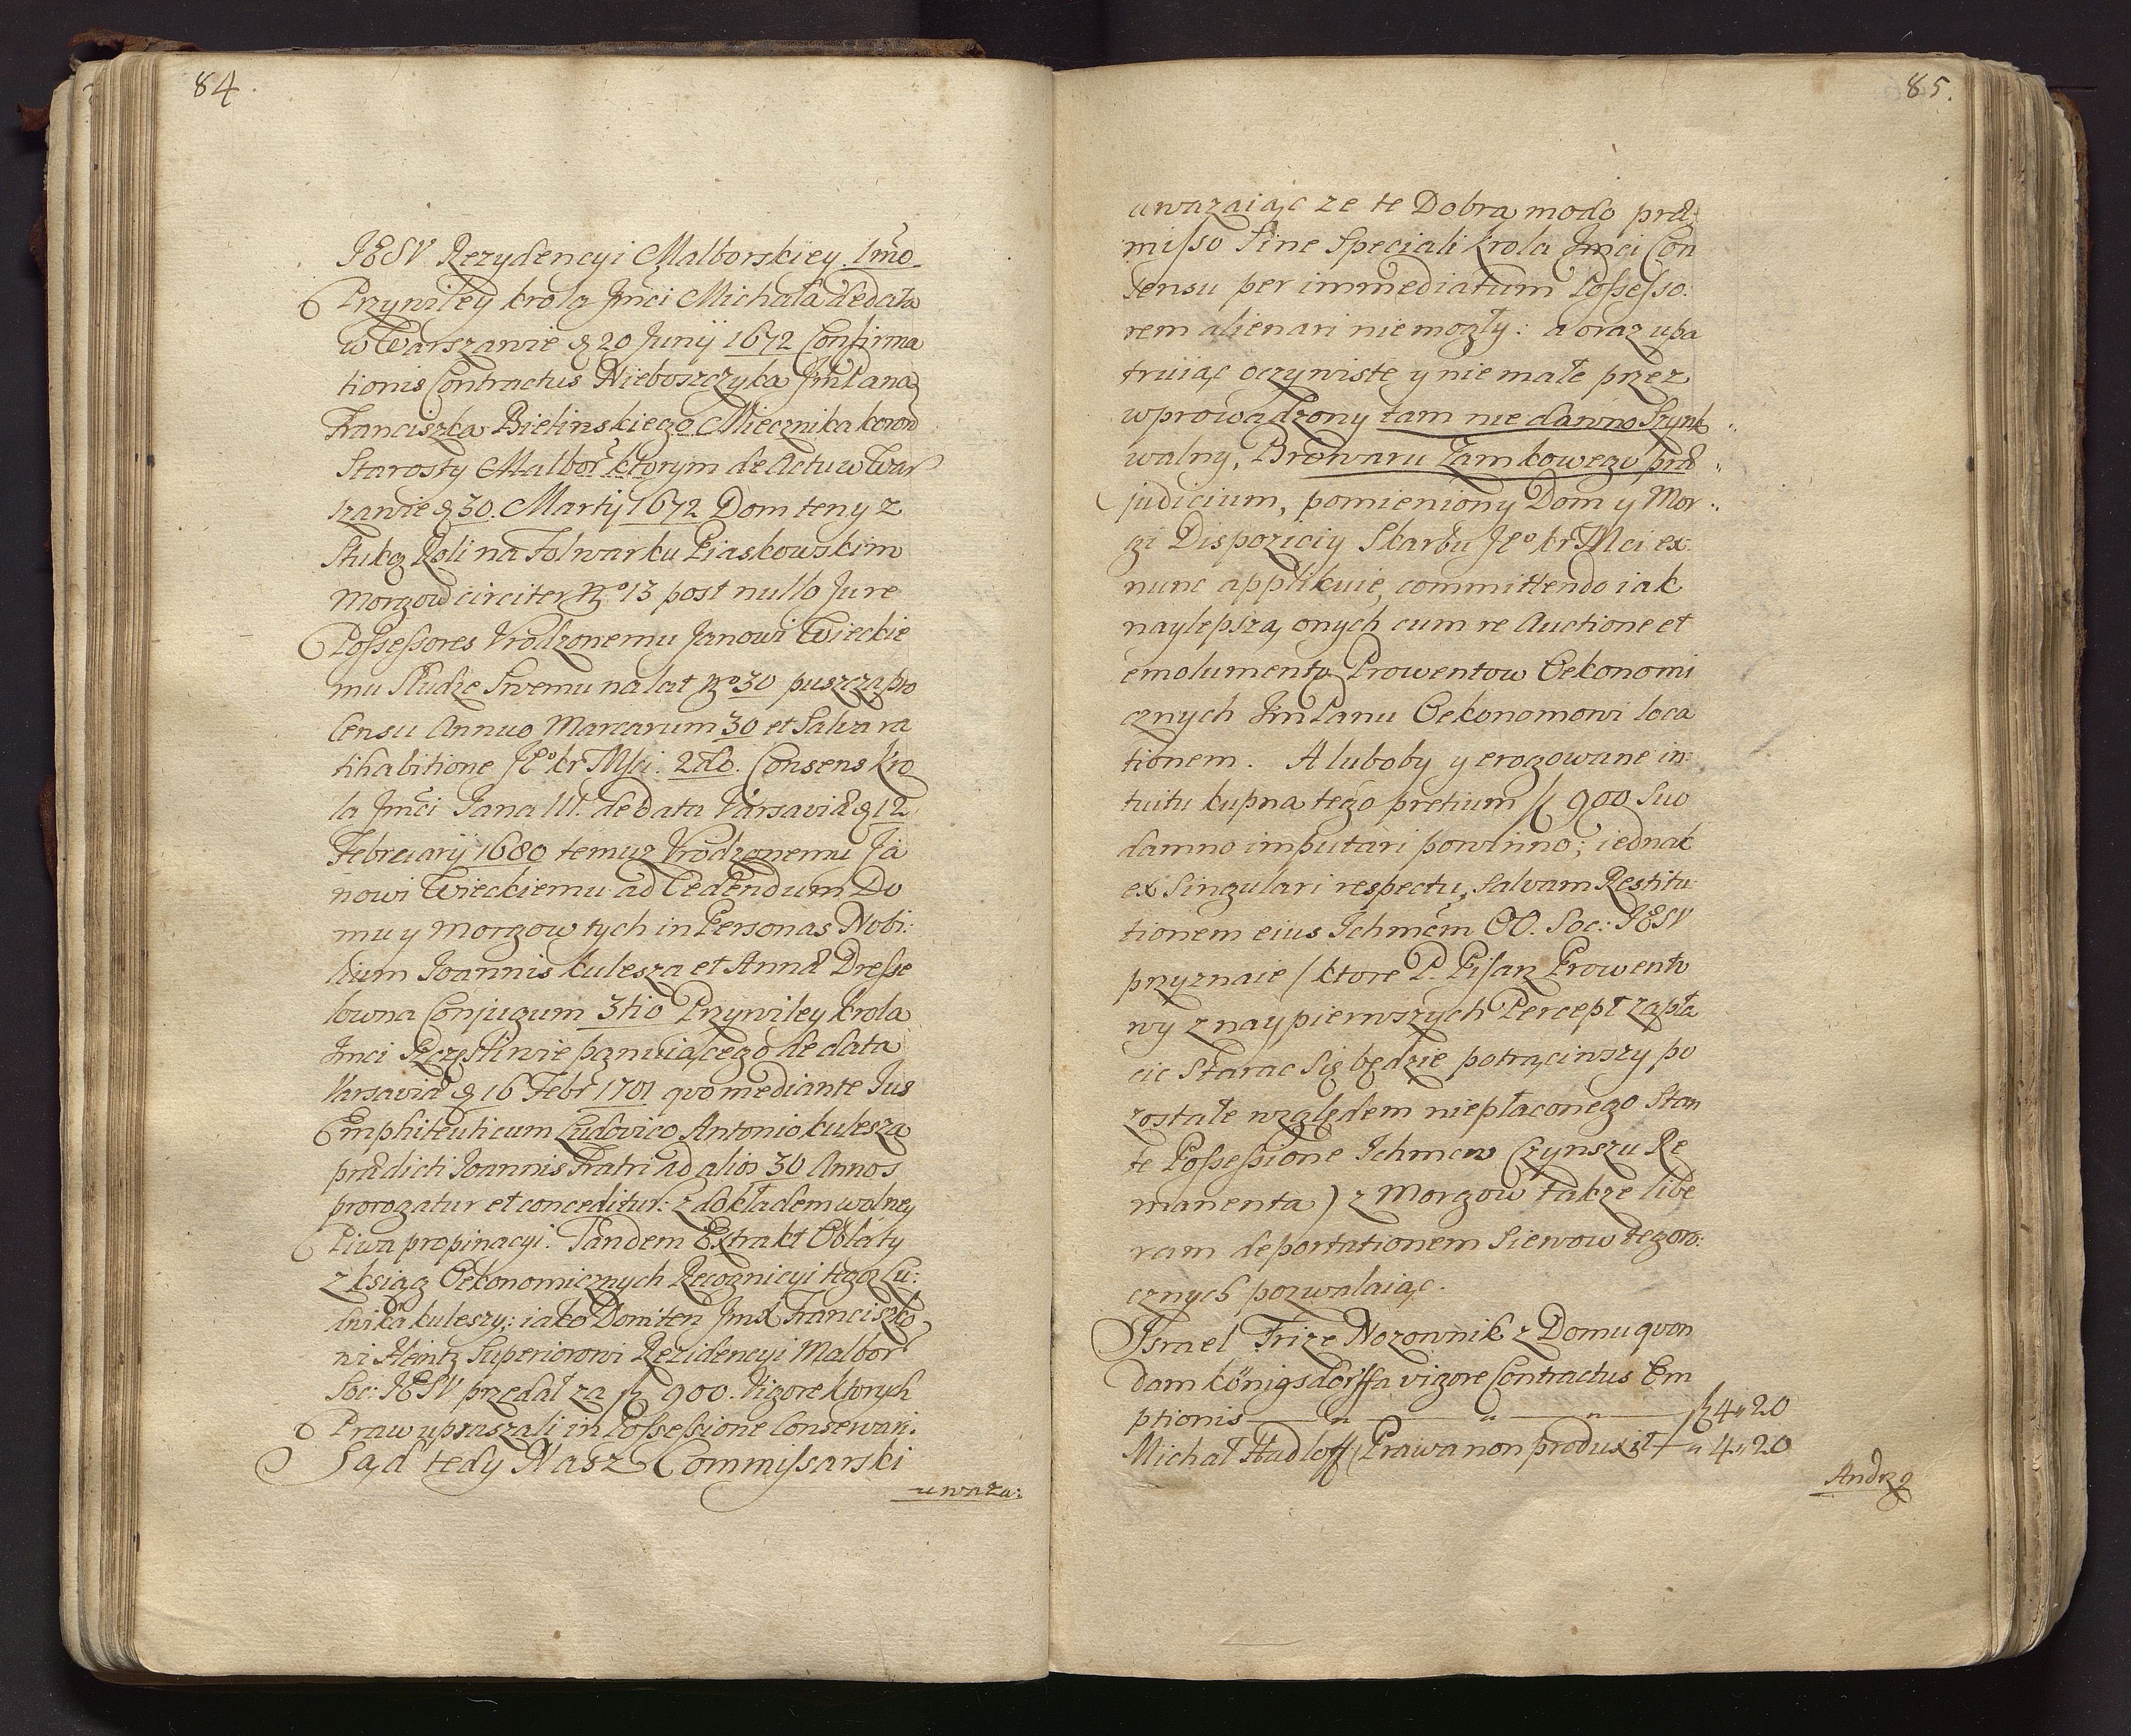 84.
JESV Rezydencyi Malborskiey. 1mo
Przywiley krola Jmci Michała de data
w Warszawie d. 20 Junij 1672 Confirma
tionis Contractus Nieboszczyka JmPana
Franciszka Bielinskiego Miecznika koron
Starosty Malbor ktorym de Actu w War
szawie d. 30. Martij 1672 Dom ten y z
Stuką Roli na Folwarku Piaskowskim
Morgow circiter No 13 post nullo Jure
Possessores Vrodzonemu Janowi Wieckie
mu Słudze Swemu na lat No 30 puszcza pro
Censu Annuo Marcarum 30 et Salva ra
tihabitione JEo kr Msci. 2do. Consens Kro
la Jmci Jana III. de data Varsaviæ d. 12
Februarij 1680 temuz Vrodzonemu Ja
nowi Wieckiemu ad Cedendum Do
mu y Morgow tych in Personas Nobi:
lium Joannis kulesza et Annæ Dresse
lowna Conjugum 3tio Przywiley krola
Jmci Szczęsliwie panuiącego de data
Varsaviæ d. 16 Febr 1701 qvo mediante Jus
Emphiteuticum Ludovico Antonio kulesza
prædicti Joannis Fratri ad alios 30 Annos
prorogatur et conceditur: z dokładem wolney
Piwa propinacyi. Tandem Extrakt Oblaty
z ksiąg Oekonomicznych Recognicyi tegoz Lu:
dwika kuleszy: iako Dom ten JmX Franciszko
wi Heintz Superiorowi Rezidencyi Malbor
Soc: JESV przedał za fl 900. Vigore ktorych
Praw upraszali in Possessione Conservari.
Sąd tedy Nasz Commissarski
uwaza:
85.
uwazaiąc ze te Dobra modo præ
misso Sine Speciali krola Jmci Con
sensu per immediatum Possesso:
rem alienari nie mogły: a oraz upa
truiąc oczywiste y nie małe przez
wprowadzony tam nie dawno Szynk
walny, Browaru Zamkowego præ
judicium, pomieniony Dom y Mor
gi Dispozicij Skarbu JEo kr Mci ex
nunc applikuie, committendo iak
naylepszą onych cum re Auctione et
emolumento Prowentow Oekonomi
cznych JmPanu Oekonomowi loca
tionem. A luboby y erogowane in:
tuitu kupna tego pretium fl 900 Suo
damno imputari powinno; iednak
ex Singulari respectu, Salvam Restitu
tionem eius Ichmcm OO. Soc: JESV
przyznaie /ktore P. Pisarz Prowento
wy z naypierwszych Percept zapła
cic Starac Się będzie potrąciwszy po
zostałe względem niepłaconego Stan
te Possessione Ichmcw Czynszu Re
manenta) z Morgow takze libe
ram deportationem Siewow tegoro:
cznych pozwalaiąc.
Israel Frize Nozownik z Domu qvon
dam königsdorffa vigore Contractus Em
ptionis — " — " — " — fl 4 " 20
Michał Hudloff (Prawa non produxit — " 4 " 20
Andrz